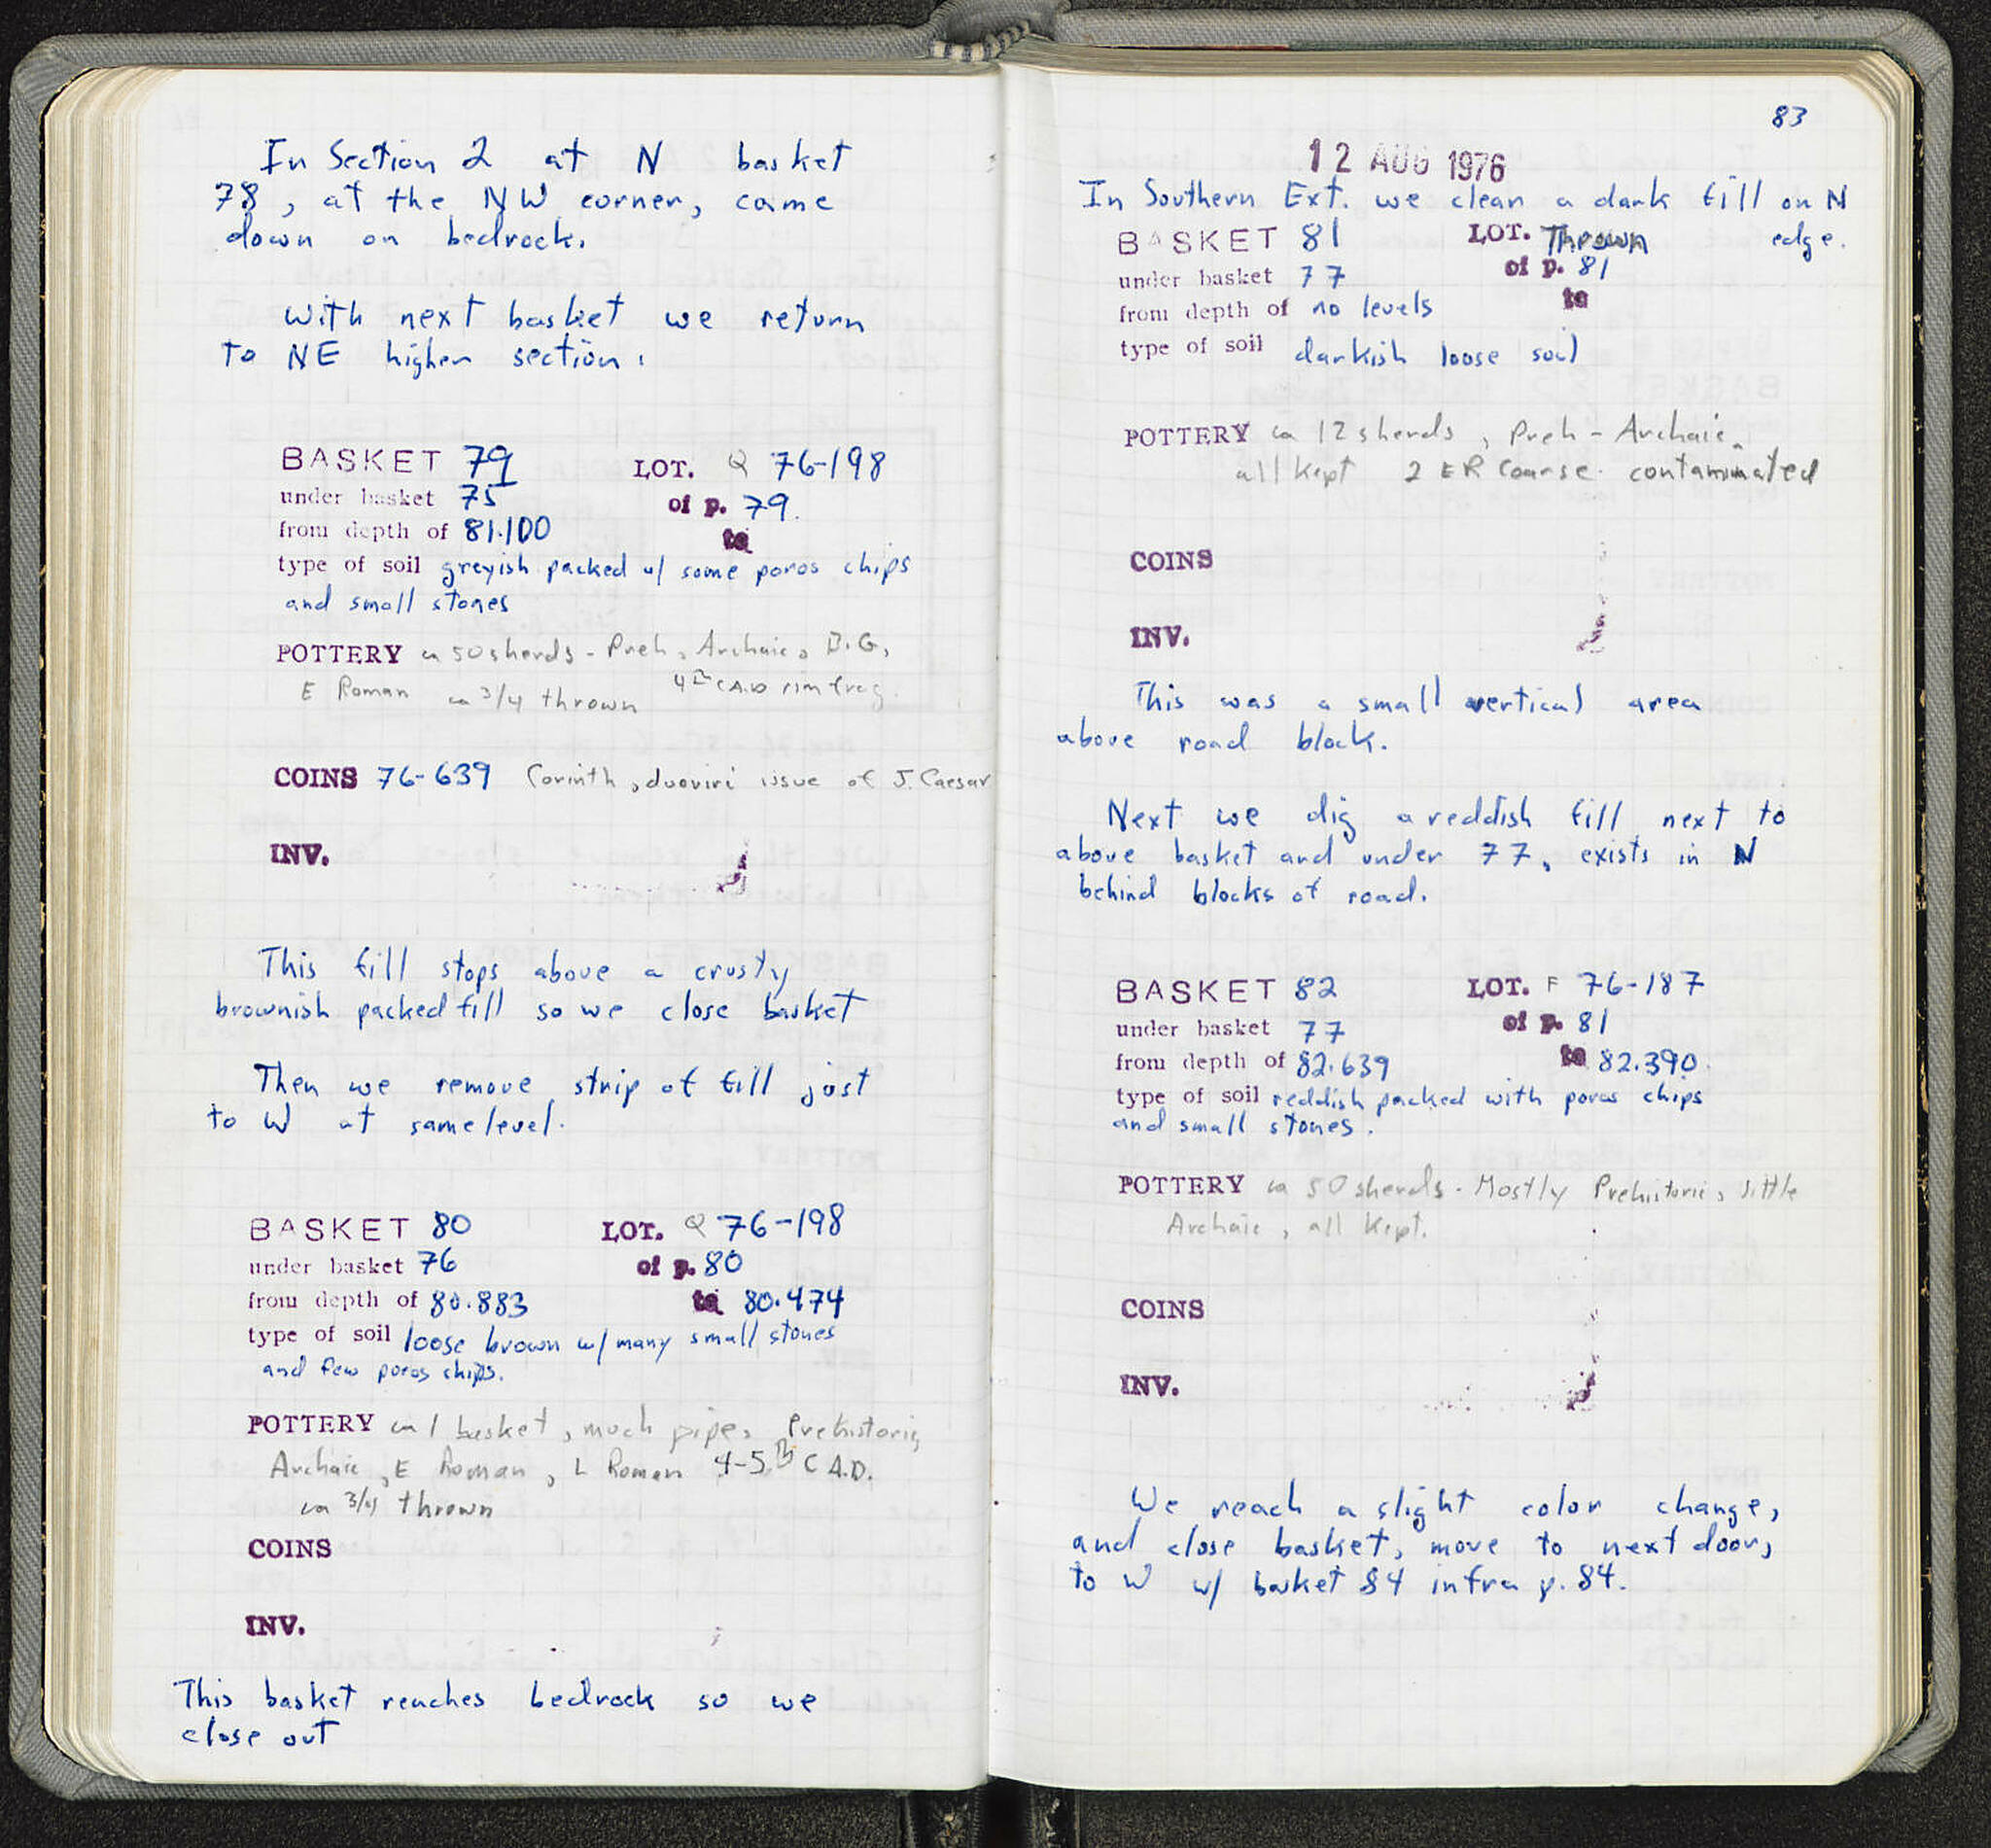 In Section 2 at N basket
78, at the NW corner, came
down on bedrock.
With next basket we return
to NE higher section.
BASKET 79 LOT. Q 76-198
under basket 75 of p. 79.
from depth of 81.100 to
type of soil greyish packed w/ some poros chips
and small stones
POTTERY ca 50 sherds - Preh, Archaic, B.G,
E Roman ca 3/4 thrown 4th C A.D rim frag.
COINS 76-639 Corinth, duoviri issue of J. Caesar
INV.
This fill stops above a crusty
brownish packed fill so we close basket
Then we remove strip of fill just
to W at same level.
BASKET 80 LOT. Q 76-198
under basket 76 of p. 80
from depth of 80.883 to 80.474
type of soil loose brown w/ many small stones
and few poros chips.
POTTERY ca 1 basket, much pipe, Prehistoric,
Archaic, E Roman, L Roman 4-5th C A.D.
ca 3/4 thrown
COINS
INV.
This basket reaches bedrock so we
close out
83
12 AUG 1976
In Southern Ext. we clean a dark fill on N
edge.
BASKET 81 LOT. Thrown
under basket 77 of p. 81
from depth of no levels to
type of soil darkish loose soil
POTTERY ca 12 sherds, Preh - Archaic.
all kept 2 ER Coarse. contaminated
COINS
INV.
This was a small vertical area
above road block.
Next we dig a reddish fill next to
above basket and under 77, exists in N
behind blocks of road.
BASKET 82 LOT. F 76-187
under basket 77 of p. 81
from depth of 82.639 to 82.390.
type of soil reddish packed with poros chips
and small stones.
POTTERY ca 50 sherds. Mostly Prehistoric, little
Archaic, all kept.
COINS
INV.
We reach a slight color change,
and close basket, move to next door,
to W w/ basket 84 infra p. 84.